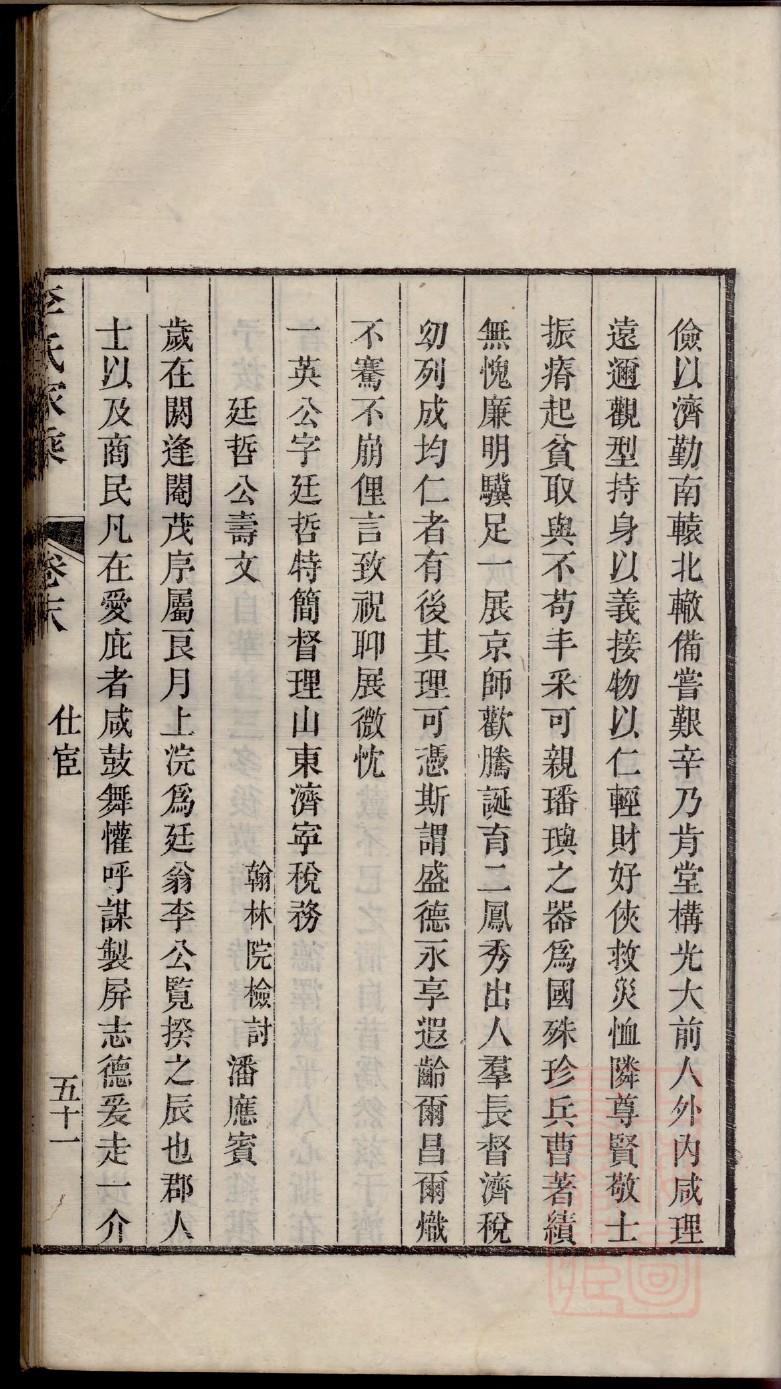 儉以濟勤南轅北轍備嘗艱辛乃肯堂構光大前人外內咸理
遠邇觀型持身以義接物以仁輕財好俠救災恤隣尊賢敬士
振瘠起貧取與不苟丰采可親璠璵之器為國殊珍兵曹著績
無愧廉明驥足一展京師歡騰誕育二鳳秀出人羣長督濟稅
㓜列成均仁者有後其理可憑斯謂盛德永享遐齡爾昌爾熾
不騫不崩俚言致祝聊展微忱
一英公字廷哲特簡督理山東濟寧稅務
廷哲公壽文 翰林院檢討潘應賓
歲在閼逢閹茂序屬良月上浣為廷翁李公覧揆之辰也郡人
士以及商民凡在愛庇者咸鼓舞懽呼謀製屏志德爰走一介
李氏家乘 卷末 仕宦 五十一